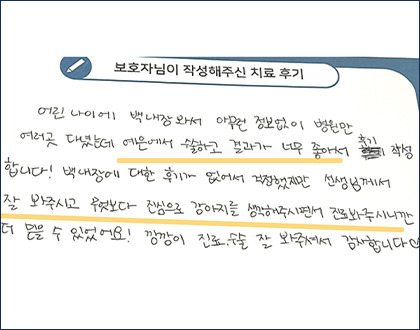 보호자님이 작성해주신 치료 후기
어린 나이에 백내장와서 아무런 정보없이 병원만
여러곳 다녔는데 예은에서 수술하고 결과가 너무 좋아서 후기 작성
합니다! 백내장에 대한 후기가 없어서 걱정했지만 선생님께서
잘 봐주시고 무엇보다 진심으로 강아지를 생각해주시면서 진료봐주시니깐
더 믿을 수 있었어요! 깡깡이 진료.수술 잘 봐주셔서 감사합니다♡